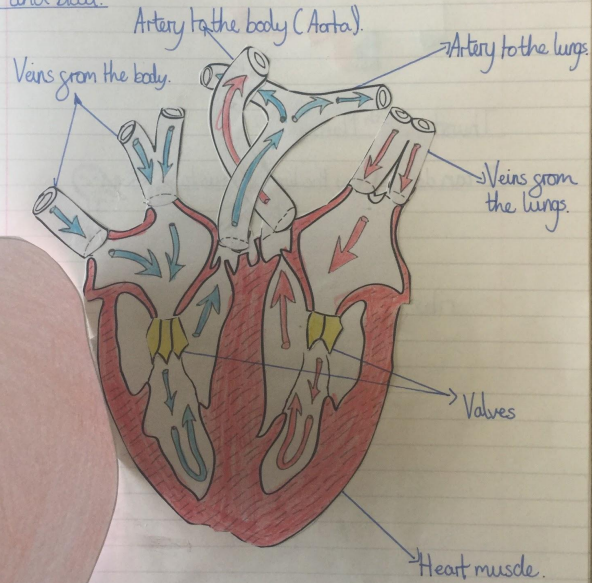 and blood.
Artery to the body (Aorta).
Artery to the lungs.
Veins from the body.
Veins from
the lungs.
Valves
Heart muscle.